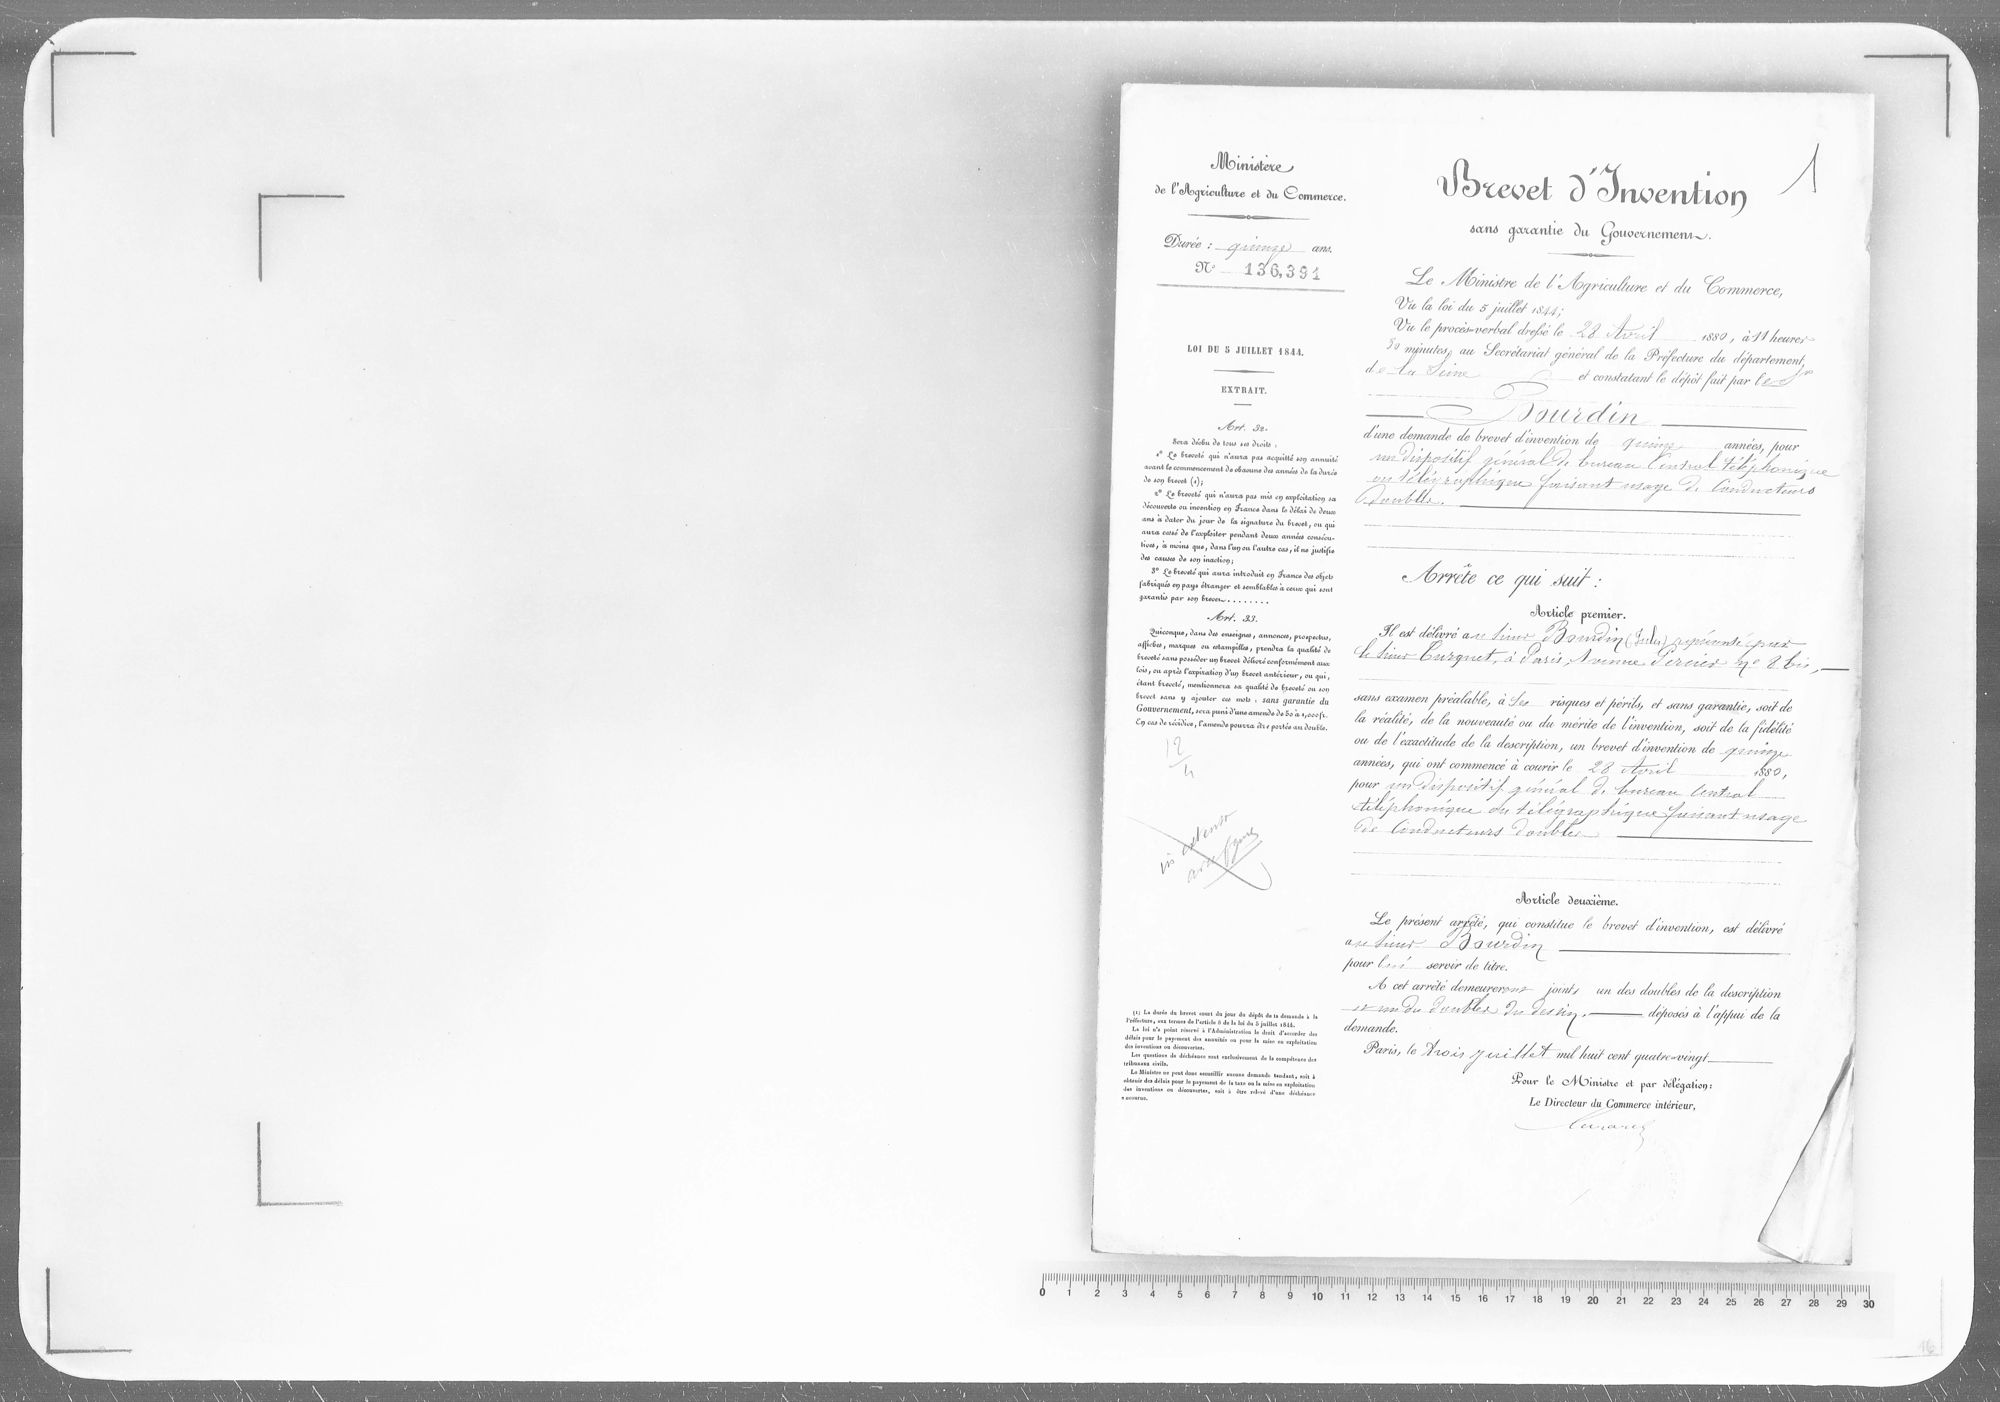 Ministère
de l'Agriculture et du Commerce.
Durée : quinze ans.
N° 136,391
LOI DU 5 JUILLET 1844.
EXTRAIT.
Art. 32.
Sera déchu de tous ses droits :
1° Le breveté qui n'aura pas acquitté son annuité
avant le commencement de chacune des années de la durée
de son brevet (1);
2° Le breveté qui n'aura pas mis en exploitation sa
découverte ou invention en France dans le délai de deux
ans à dater du jour de la signature du brevet, ou qui
aura cessé de l'exploiter pendant deux années consécu-
tives, à moins que, dans l'un ou l'autre cas, il ne justifie
des causes de son inaction;
3° Le breveté qui aura introduit en France des objets
fabriqués en pays étranger et semblables à ceux qui sont
garantis par son brevet........
Art. 33.
Quiconque, dans des enseignes, annonces, prospectus,
affiches, marques ou estampilles, prendra la qualité de
breveté sans posséder un brevet délivré conformément aux
lois, ou après l'expiration d'un brevet antérieur, ou qui,
étant breveté, mentionnera sa qualité de breveté ou son
brevet sans y ajouter ces mots : sans garantie du
Gouvernement, sera puni d'une amende de 50 à 1,000 fr.
En cas de récidive, l'amende pourra être portée au double.
12
4
in extenso
(1) La durée du brevet court du jour du dépôt de la demande à la
Préfecture, aux termes de l'article 8 de la loi du 5 juillet 1844.
La loi n'a point réservé à l'Administration le droit d'accorder des
délais pour le payement des annuités ou pour la mise en exploitation
des inventions ou découvertes.
Les questions de déchéance sont exclusivement de la compétence des
tribunaux civils.
Le Ministre ne peut donc accueillir aucune demande tendant, soit à
obtenir des délais pour le payement de la taxe ou la mise en exploitation
des inventions ou découvertes, soit à être relevé d'une déchéance
encourue.
1
Brevet d'Invention
sans garantie du Gouvernement.
Le Ministre de l'Agriculture et du Commerce,
Vu la loi du 5 juillet 1844;
Vu le procès-verbal dressé le 28 Avril 1880, à 11 heures
30 minutes, au Secrétariat général de la Préfecture du département
de la Seine et constatant le dépôt fait par le Sr
Bourdin
d'une demande de brevet d'invention de quinze années, pour
un dispositif général de bureau Central téléphonique
ou télégraphique faisant usage de Conducteurs
doubles.
Arrête ce qui suit :
Article premier.
Il est délivré au Sieur Bourdin (Jules) représenté par
le Sieur à Paris, Avenue n° 8 bis,
sans examen préalable, à ses risques et périls, et sans garantie, soit de
la réalité, de la nouveauté ou du mérite de l'invention, soit de la fidélité
ou de l'exactitude de la description, un brevet d'invention de quinze
années, qui ont commencé à courir le 28 Avril 1880,
pour un dispositif général de bureau Central
téléphonique ou télégraphique faisant usage
de Conducteurs doubles
Article deuxième.
Le présent arrêté, qui constitue le brevet d'invention, est délivré
au Sieur Bourdin
pour lui servir de titre.
A cet arrêté demeureront joints un des doubles de la description
et un des doubles du dessin, déposés à l'appui de la
demande.
Paris, le trois juillet mil huit cent quatre-vingt
Pour le Ministre et par délégation:
Le Directeur du Commerce intérieur,
0 1 2 3 4 5 6 7 8 9 10 11 12 13 14 15 16 17 18 19 20 21 22 23 24 25 26 27 28 29 30
16